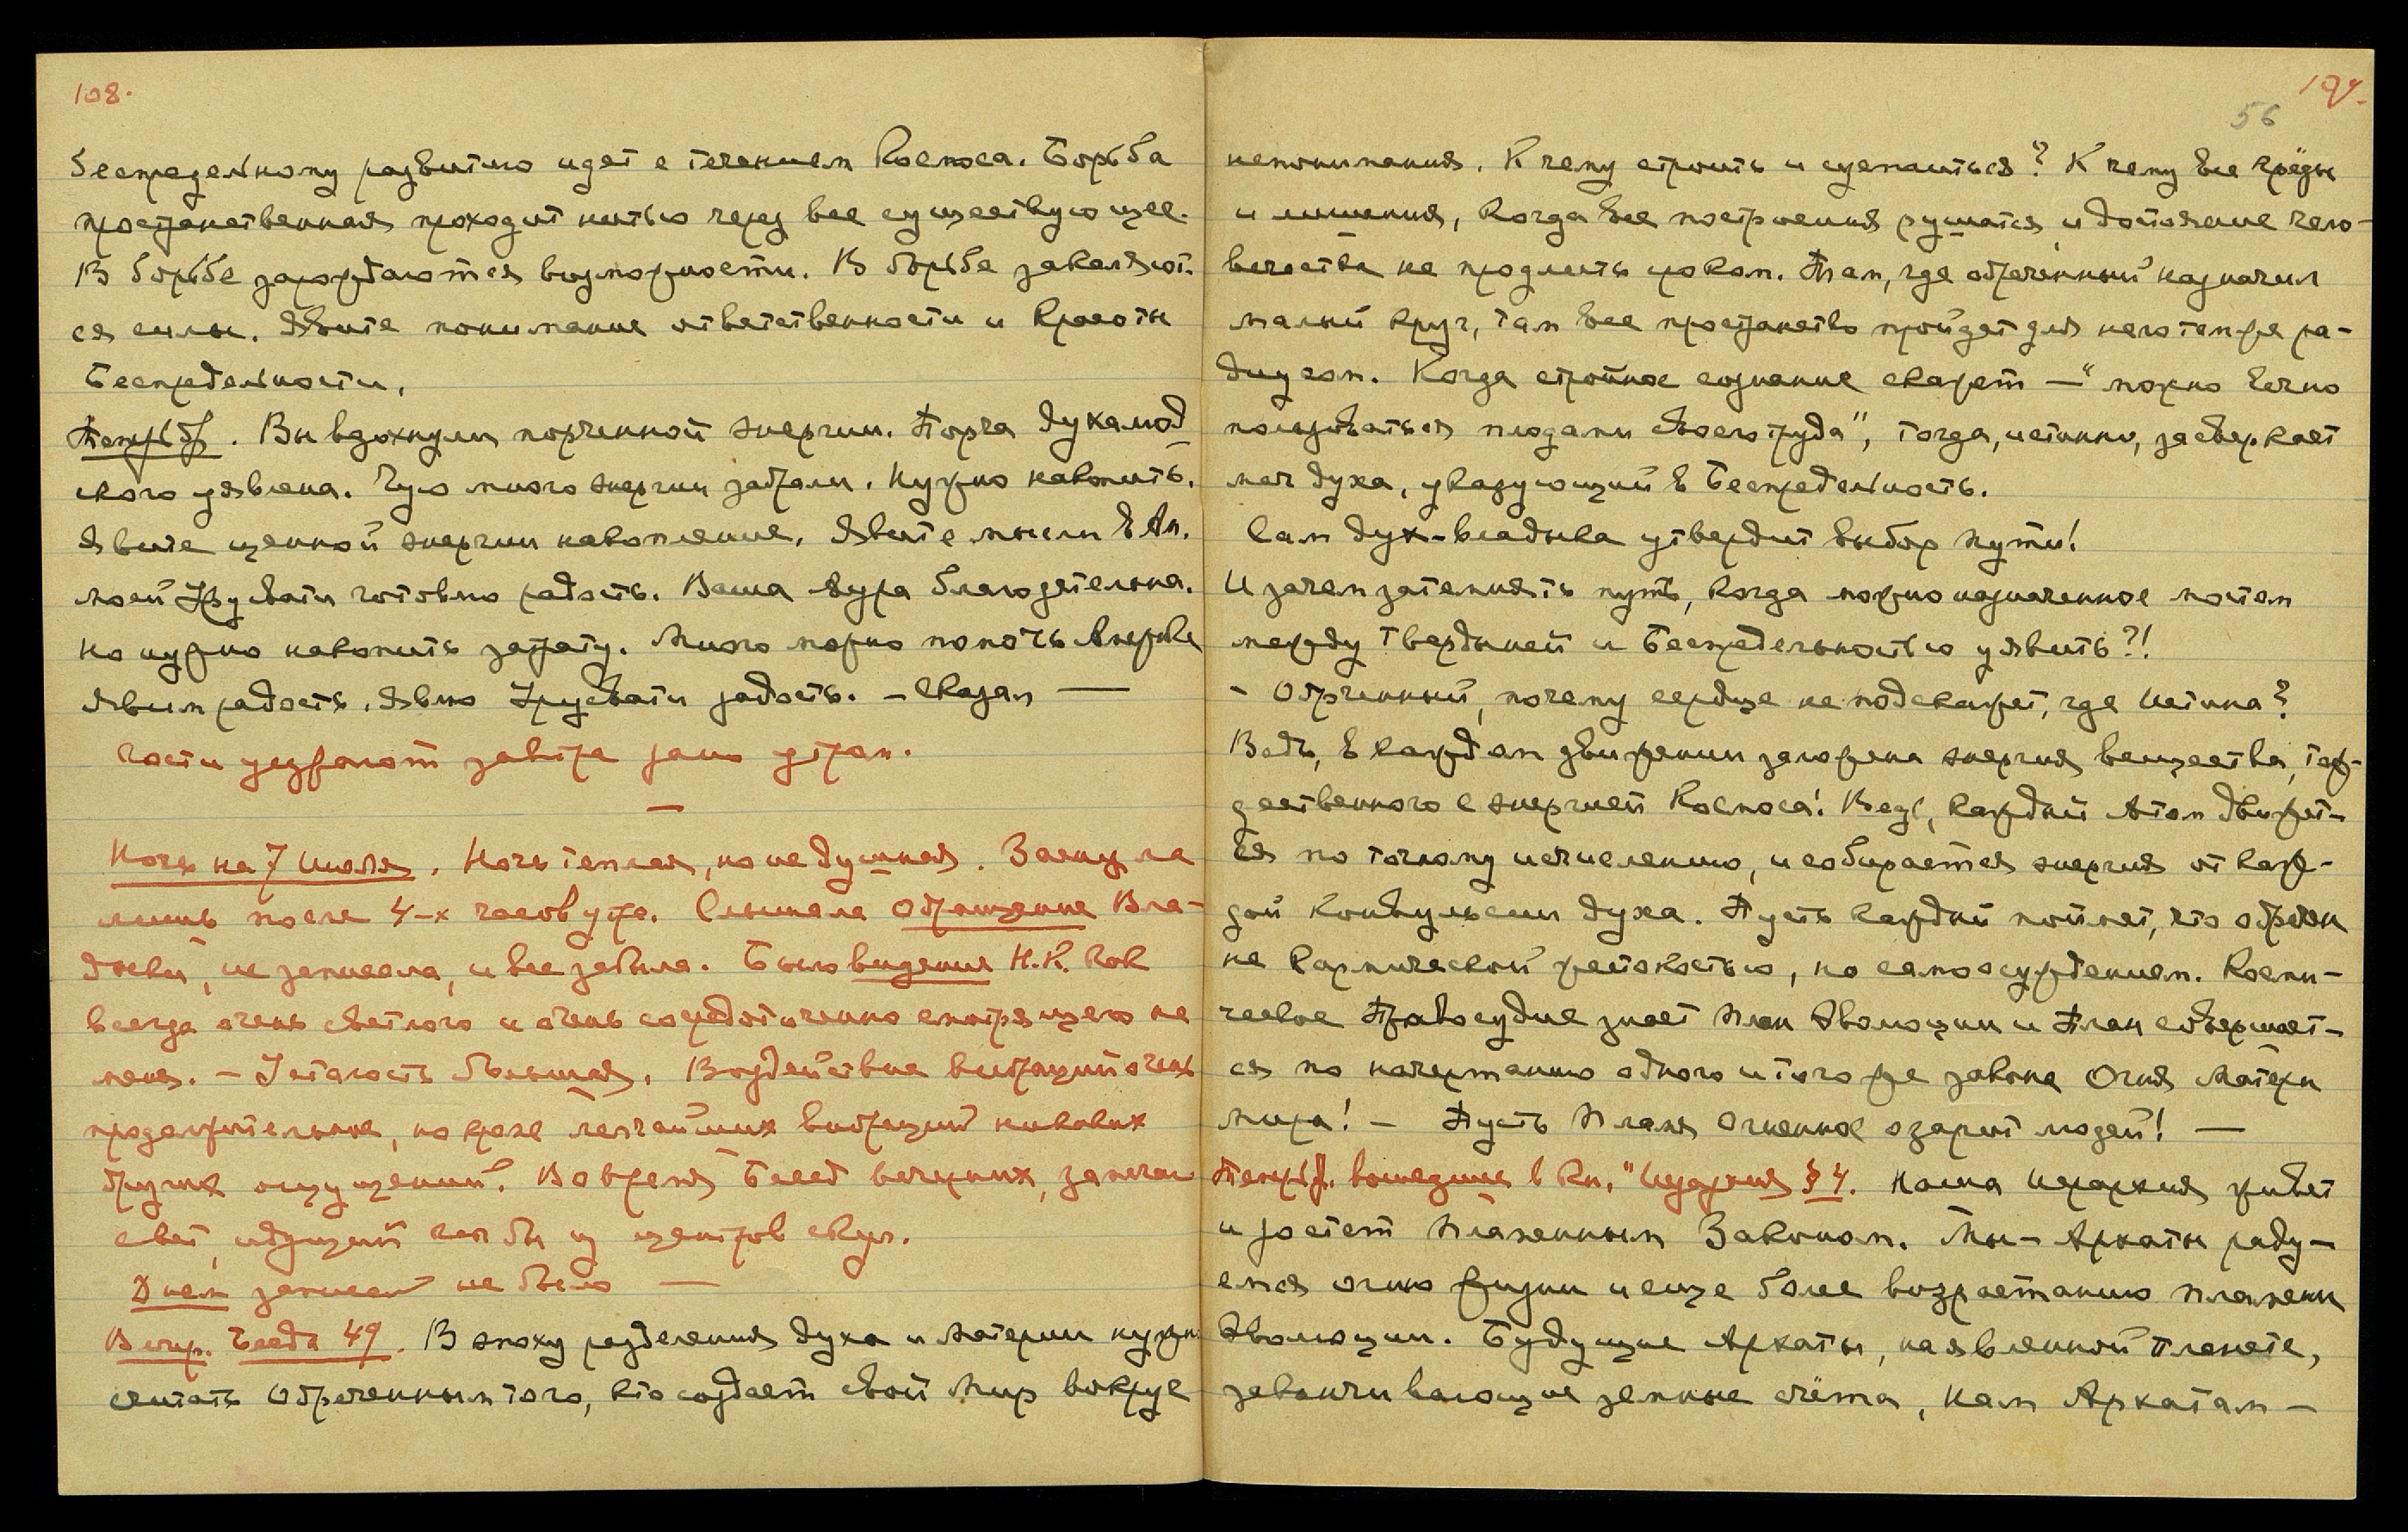 108.
беспредельному развитию идет с течением Космоса. Борьба
пространственная проходит нитью через все существующее.
В борьбе зарождаются возможности. В борьбе закаляют-
ся силы. Явите понимание ответственности и красоты
Беспредельности.
Вы вдохнули порченной энергии. Порча духа люд
ского уявлена. Чую много энергии забрали. Нужно накопить.
Явите ценной энергии накопление. Явите мысли в Ам.
моей Урусвати готовлю радость. Ваша аура благодетельна.
но нужно накопить затрату. Много можно помочь Америке
Явим радость. Явлю Урусвати радость. – Сказал —
Гости уезжают завтра рано утром.
—
Ночь на 7 Июля. Ночь теплая, но не душная. Заснула
лишь после 4-х часов утра. Слышала Обращение Вла-
дыки, не записала, и все забыла. Было видение Н.К. как
всегда очень светлого и очень сосредоточенно смотрящего на
меня. – Усталость большая. Воздействие вибраций очень
продолжительное, но кроме легчайших вибраций никаких
других ощущений. Во время Бесед вечерних, замечаю
свет, идущий как бы из центров скул.
Днем записей не было —
Вечер. Беседа 49. В эпоху разделения духа и материи нужно
считать Обреченным того, кто создает свой Мир вокруг
109.
56
непонимания. К чему строить и суетиться? К чему все труды
и лишения, когда все построения рушатся, и достояние чело-
вечества не продлить сроком. Там, где обреченный назначил
малый круг, там все пространство пройдет для него тем же ра-
диусом. Когда стройное сознание скажет – "можно вечно
пользоваться плодами своего труда", тогда, истинно, засверкает
меч духа, указующий в Беспредельность.
Сам дух-владыка утвердит выбор пути!
И зачем затемнять путь, когда можно назначенное мостом
между Твердыней и Беспредельностью уявить?!
– Обреченный, почему сердце не подскажет, где Истина?
Ведь, в каждом движении заложена энергия вещества, тож-
дественного с энергией Космоса! Ведь, каждый Атом движет-
ся по точному исчислению, и собирается энергия от каж-
дой конвульсии духа. Пусть каждый поймет, что обречен
не кармической жестокостью, но самоосуждением. Косми-
ческое Правосудие знает План Эволюции и План совершает-
ся по начертанию одного и того же закона Огня Матери
Мира! – Пусть Пламя Огненное озарит людей! —
вошедшие в кн. "Иерархия § 4. Наша Иерархия живет
и растет Пламенным Законом. Мы – Архаты раду-
емся огню жизни и еще более возрастанию пламени
Эволюции. Будущие Архаты, на явленной планете,
заканчивающие земные счёта, Нам Архатам –